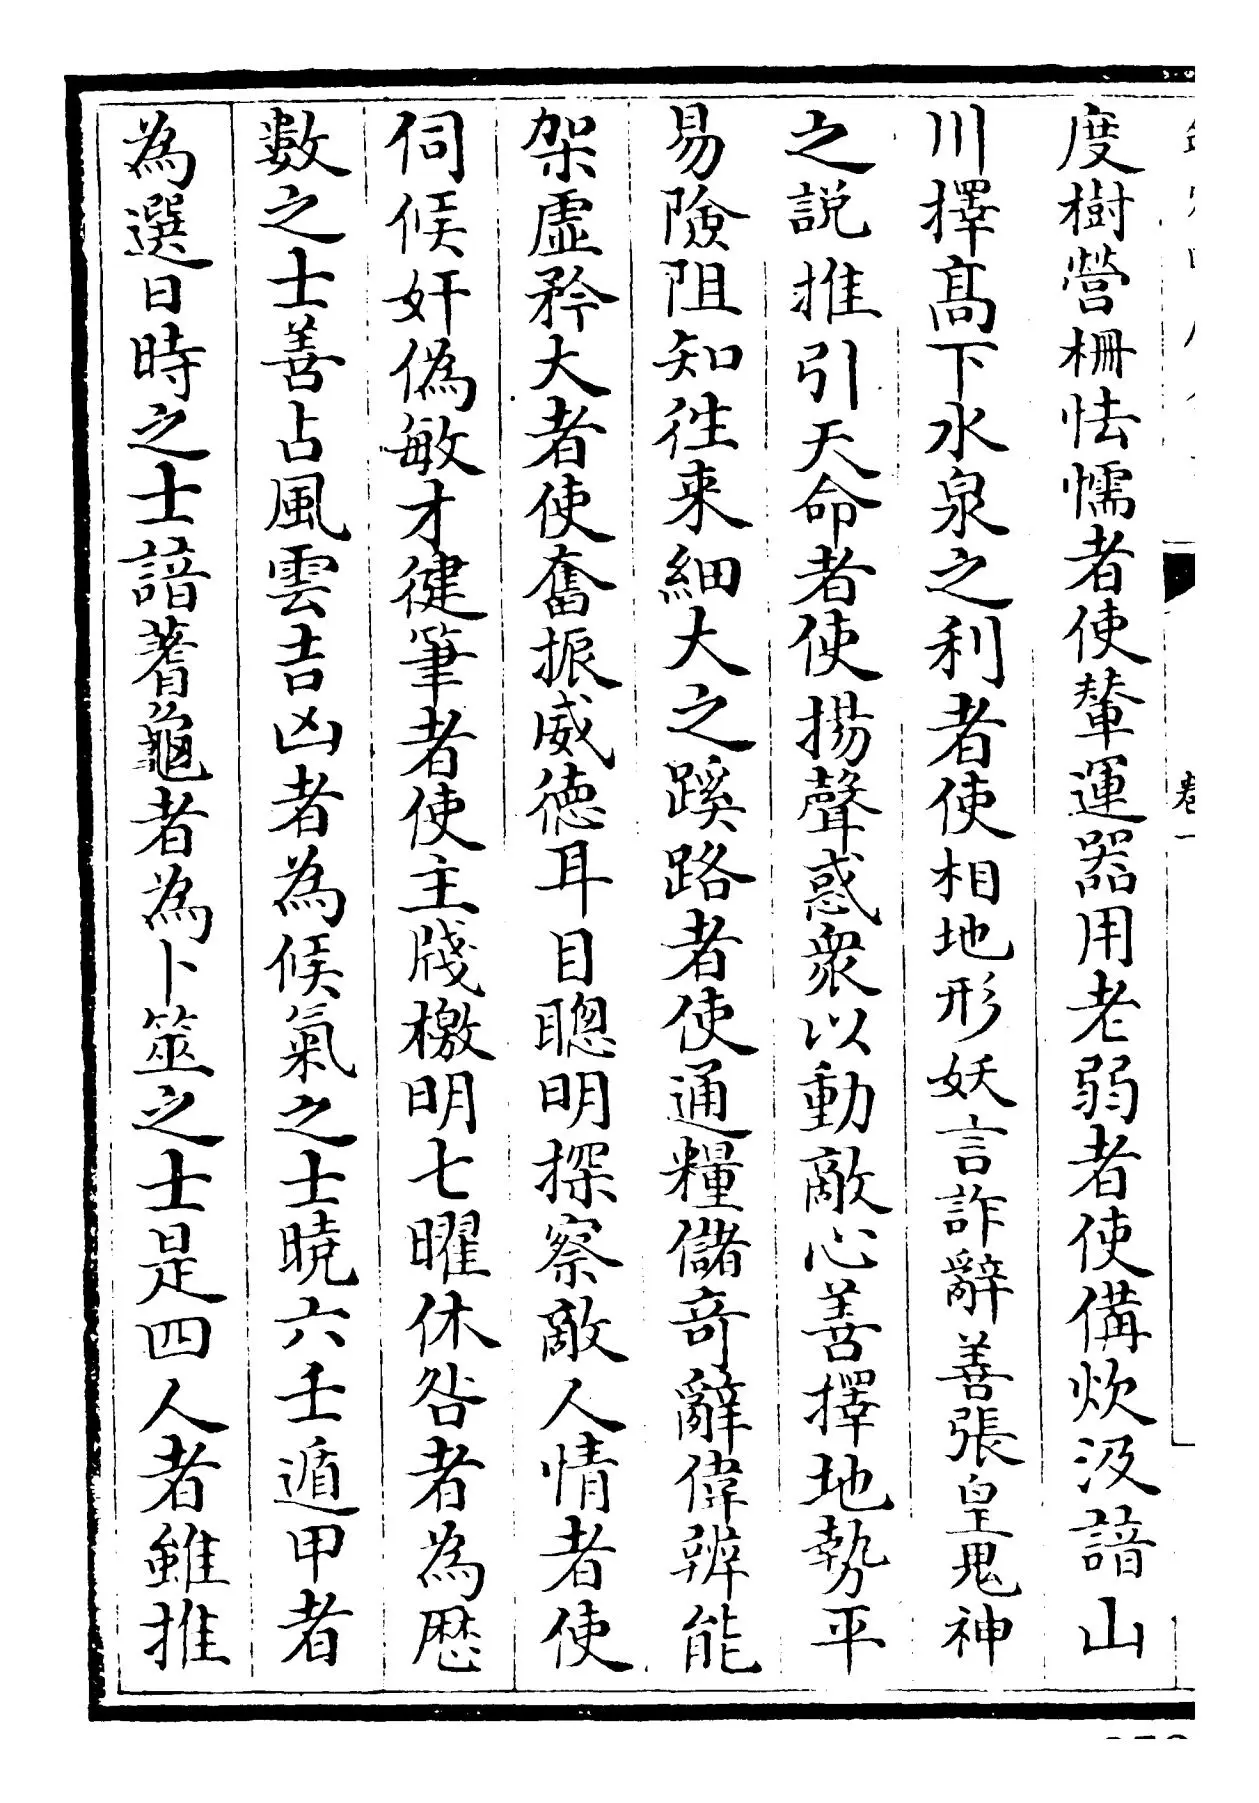 度樹營柵怯懦者使輦運器用老弱者使備炊汲諳山
川擇髙下水泉之利者使相地形妖言詐辭善張皇鬼神
之説推引天命者使揚聲惑衆以動敵心善擇地勢平
易險阻知徃来細大之蹊路者使通糧儲竒辭偉辨能
架虛矜大者使奮振威徳耳目聰明探察敵人情者使
伺候奸偽敏才健筆者使主牋檄明七曜休咎者為厯
數之士善占風雲吉凶者為候氣之士曉六壬遁甲者
為選日時之士諳蓍龜者為卜筮之士是四人者雖推
卷一